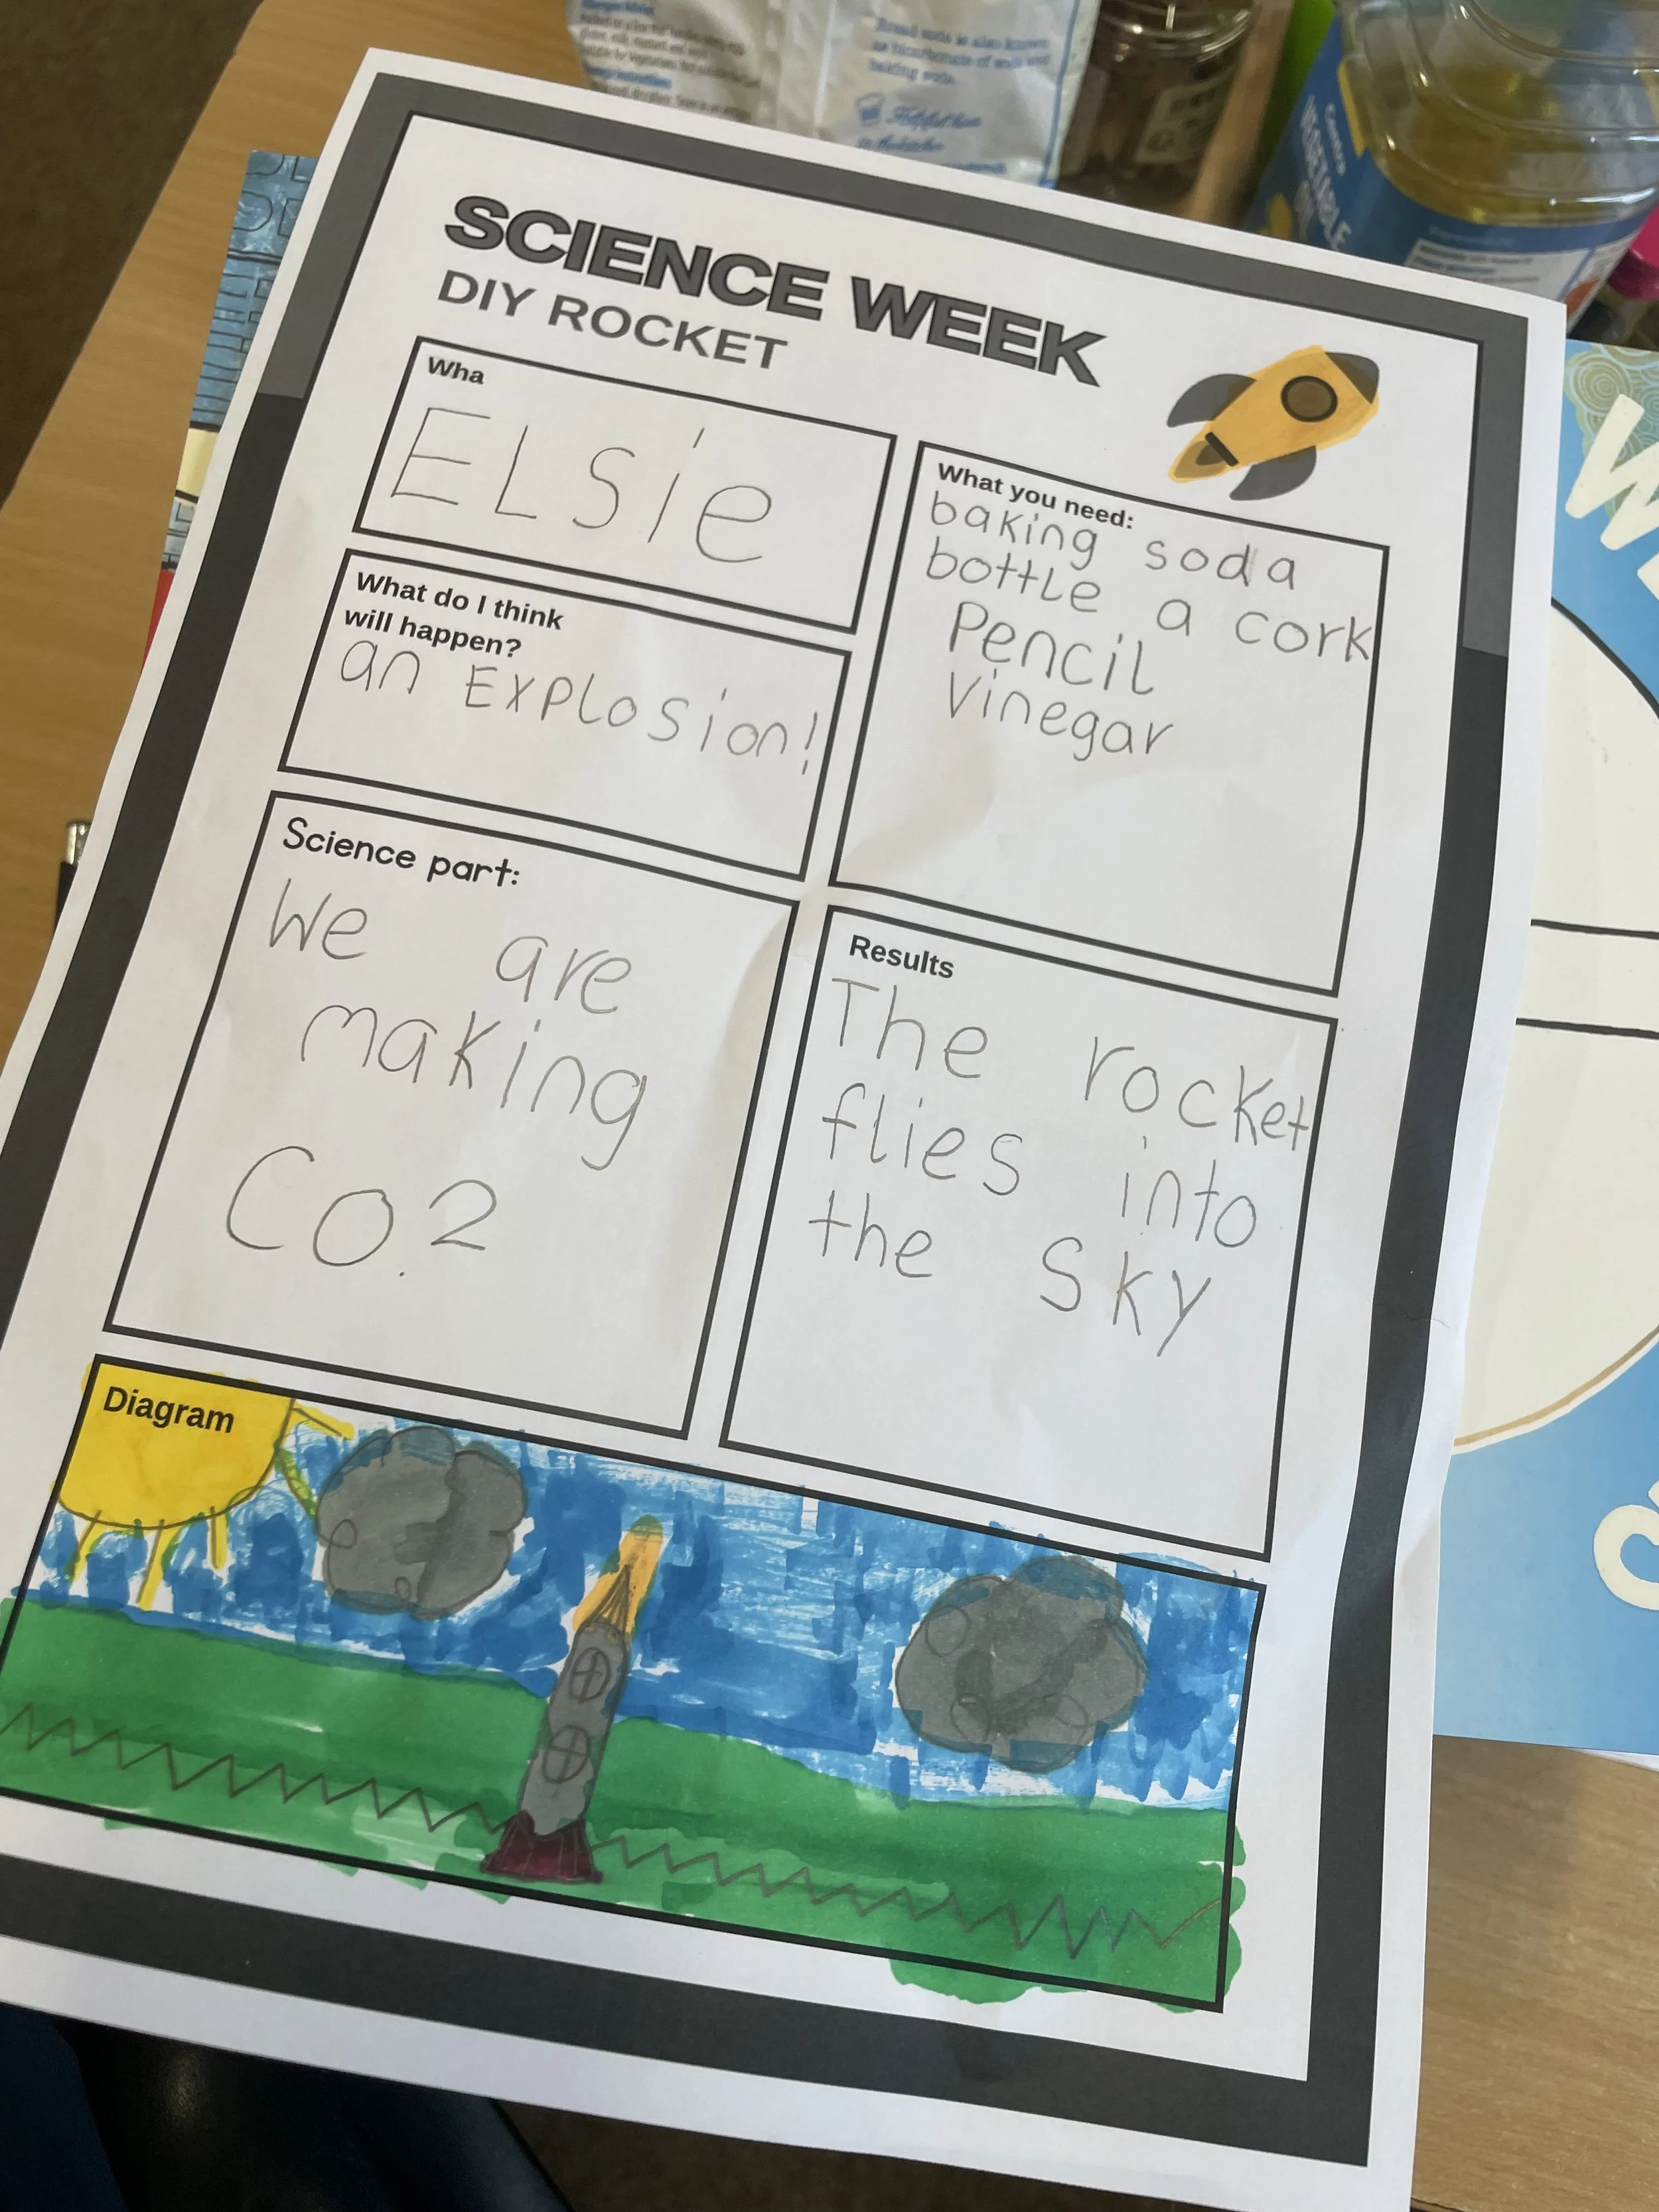 Bread soda is also known
as bicarbonate of soda and
baking soda.
VEGETABLE
SCIENCE WEEK
DIY ROCKET
Wha
ELSie
What you need:
baking soda
bottle a cork
Pencil
Vinegar
What do I think
will happen?
an Explosion!
Science part:
We are
making
Co.2
Results
The rocket
flies into
the SKY
Diagram